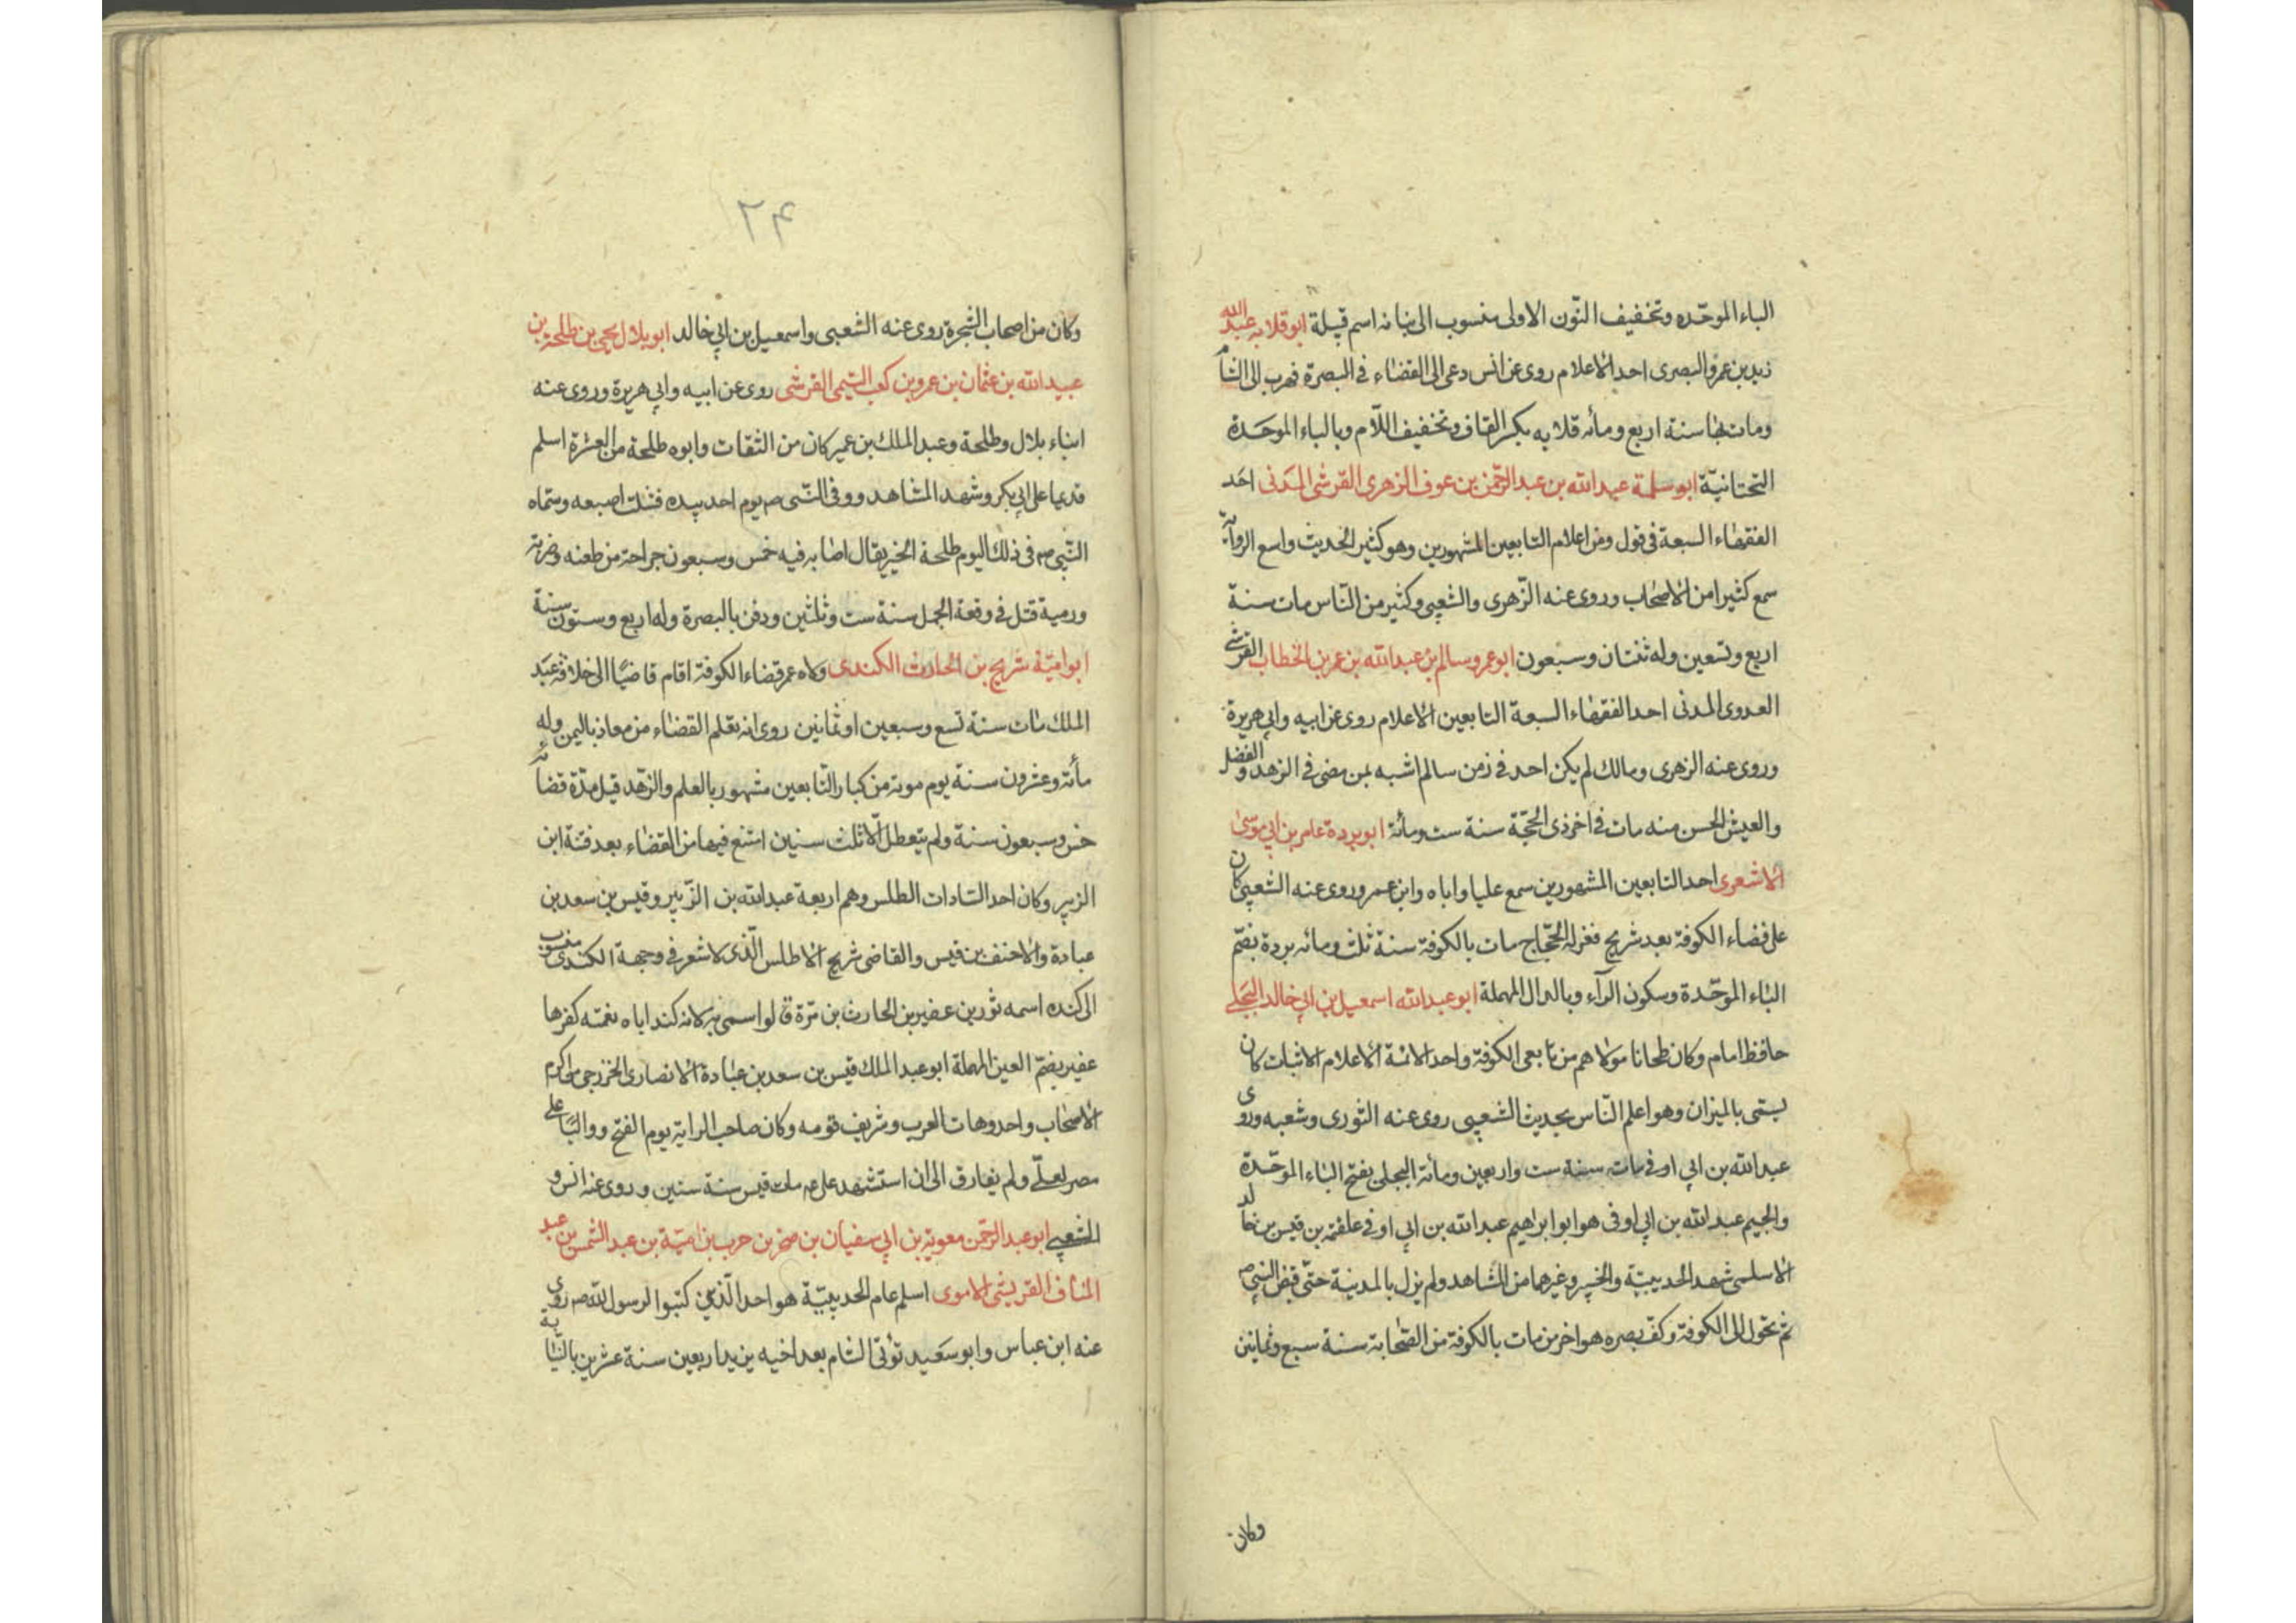 الباء الموحّده وتخفيف النّون الاولى منسوب الى بنانه اسم قبيلة ابو قلابه عبد الله
زيد بن عمرو البصرى احد الاعلام روى عن انس دعى الى القضاء فى البصرة فهرب الى الشام
ومات بها سنة اربع ومأئه قلابه بكسر القاف وتخفيف اللّام وبالباء الموحَدة
التحتانيّة ابو سلمة عبد الله بن عبد الرّحمن بن عوف الزهرى القرشى المدنى احَد
الفقهاء السبعة فى قول ومن اعلام التابعين المشهورين وهو كثير الحديث واسع الرواية
سمع كثيرا من الاصحاب وروى عنه الزّهرى والشعبى وكثير من النّاس مات سنة
اربع وتسعين وله ثنتان وسبعون ابو عمرو سالم بن عبد الله بن عمر بن الخطاب القرشى
العدوى المدنى احد الفقهاء السبعة التابعين الاعلام روى عن ابيه وابى هريرة
وروى عنه الزهرى ومالك لم يكن احد فى زمن سالم اشبه بمن مضى فى الزهد والفضل
والعيش الحسن منه مات فى اخر ذى الحجّة سنة ست ومأئة ابو بردة عامر بن ابى موسى
الاشعرى احد التابعين المشهورين سمع عليا واباه وابن عمر وروى عنه الشعبى كان
على قضاء الكوفة بعد شريح فعزله الحجّاج مات بالكوفة سنة ثلث ومائه بردة بضمّ
الباء الموحّدة وسكون الرآء وبالدال المهملة ابو عبد الله اسمعيل بن ابى خالد البجلى
حافظ امام وكان طحانا مولاهم من تابعى الكوفة واحد الائمة الاعلام الاثبات كان
يسمى بالميزان وهو اعلم النّاس بحديث الشعبى روى عنه الثورى وشعبه وروى
عبد الله بن ابى اوفى مات سنة ست واربعين ومأئة البجلى بفتح الباء الموحّدة
والجيم عبد الله بن ابى اوفى هو ابو ابراهيم عبد الله بن ابى اوفى علقمة بن قيس بن خالد
الاسلمى شهد الحديبيّة والخيبر وغيرهما من المشاهد ولم يزل بالمدينة حتّى قبض النبى ص
ثم تحول الى الكوفة وكفّ بصره هو اخر من مات بالكوفة من الصّحابة سنة سبع وثمانين
وكان
٢٤
وكان من اصحاب الشجرة روى عنه الشعبى واسمعيل بن ابى خالد ابو بلال يحيى بن طلحة بن
عبيد الله بن عثمان بن عمرو بن كعب التيمى القرشى روى عن ابيه وابى هريرة وروى عنه
ابناء بلال وطلحة وعبد الملك بن عمير كان من الثقات وابوه طلحة من العشرة اسلم
قديما على ابى بكر وشهد المشاهد ووقى النّبى ص يوم احد بيده فشلت اصبعه وسمّاه
النّبى ص فى ذلك اليوم طلحة الخير يقال اصابه فيه خمس وسبعون جراحة من طعنه وضربة
ورمية قتل فى وقعة الجمل سنة ست وثلثين ودفن بالبصرة وله اربع وستون سنة
ابو اميّة شريح بن الحارث الكندى ولاه عمر قضاء الكوفة اقام قاضيًا الى خلافة عبَد
الملك مات سنة تسع وسبعين او ثمانين روى انه تعلم القضاء من معاذ باليمن وله
مأئة وعشرون سنة يوم موته من كبار التّابعين مشهور بالعلم والزّهد قيل مدّة قضائه
خمس وسبعون سنة ولم يتعطل الّا ثلث سنين امتنع فيها من القضاء بعد فتنة ابن
الزبير وكان احد السّادات الطلس وهم اربعة عبد الله بن الزّبير وقيس بن سعد بن
عبادة والاحنف بن قيس والقاضى شريح الاطلس الّذى لا شعر فى وجهة الكندى منسوب
الى كنده اسمه ثور بن عفير بن الحارث بن مرّة قالوا سمى به لانه كند اباه نعمته كفرها
عفير بضمّ العين المهملة ابو عبد الملك قيس بن سعد بن عبادة الانصارى الخزرجى من اكرم
الاصحاب واحد دهات العرب وشريف قومه وكان صاحب الراية يوم الفتح وواليًا على
مصر لعلّى ولم يفارق الى ان استشهد على ع م مات قيس سنة ستين وروى عنه انس و
الشعبى ابو عبد الرّحمن معوية بن ابى سفيان بن صخر بن حرب بن اميّة بن عبد الشمس بن عبد
المناف القريشى الاموى اسلم عام الحديبيّة هو احد الّذين كتبوا لرسول الله ص روى
عنه ابن عباس وابو سعَيد تولّى الشام بعد اخيه يزيد اربعين سنة عشرين بالنيابة